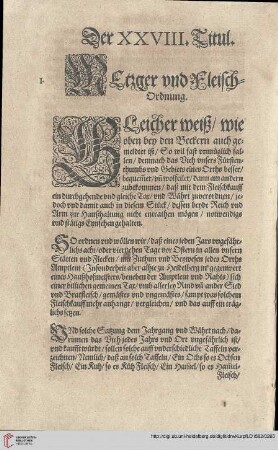 Der XXVIII. Titul.
I.
Metzger vnd Fleisch-
Ordnung.
GLeicher weiß / wie
oben bey den Beckern auch ge-
meldtet ist / So wil fast vnmüglich fal-
len / demnach das Viech vnsers Fürsten-
thumbs vnd Gebiets eines Orths besser /
bequemer / vn wolfeiler / dann am andern
zubekommen / daß mit dem Fleischkauff
ein durchgehende vnd gleiche Tax / vnd Währt zuverordnen / je-
doch vnd damit auch in diesem Stück / dessen beede Reich vnd
Arm zur Haußhaltung nicht entrathen mögen / notwendigs
vnd fleissigs Einsehen gehalten.
SO ordnen vnd wöllen wir / daß eines jeden Jars vngefähr-
lich acht / oder vierzehen Tage vor Ostern in allen vnsern
Stätten vnd Flecken / mit Zuthun vnd Beywesen jedes Orts
Amptleut (Insonderheit aber allhie zu Heidelberg mit gegenwart
eines Haußhofmeisters / beneben der Amptleut vnd Raths) sich
einer billichen gemeinen Tax / vmb allerley Rindvih ander Sied
vnd Bratfleisch / gemästes vnd vngemästes / sampt was solchem
Fleischkauff mehr anhangt / vergleichen / vnd das auff ein träg-
lichs setzen.
VNd solche Satzung dem Jahrgang vnd Währt nach / da-
rinnen das Viech jedes Jars vnd Ort vngefährlich ist /
vnd kaufft würdt / sollen solche auff vnderschiedliche Taffeln ver-
zeichnen / Nemlich / daß an solch Taffeln / Ein Ochs so es Ochsen
Fleisch / Ein Kuhe / so es Küh Fleisch / Ein Hamel / so es Hamel-
Fleisch /
UNIVERSITÄTS-
BIBLIOTHEK
HEIDELBERG